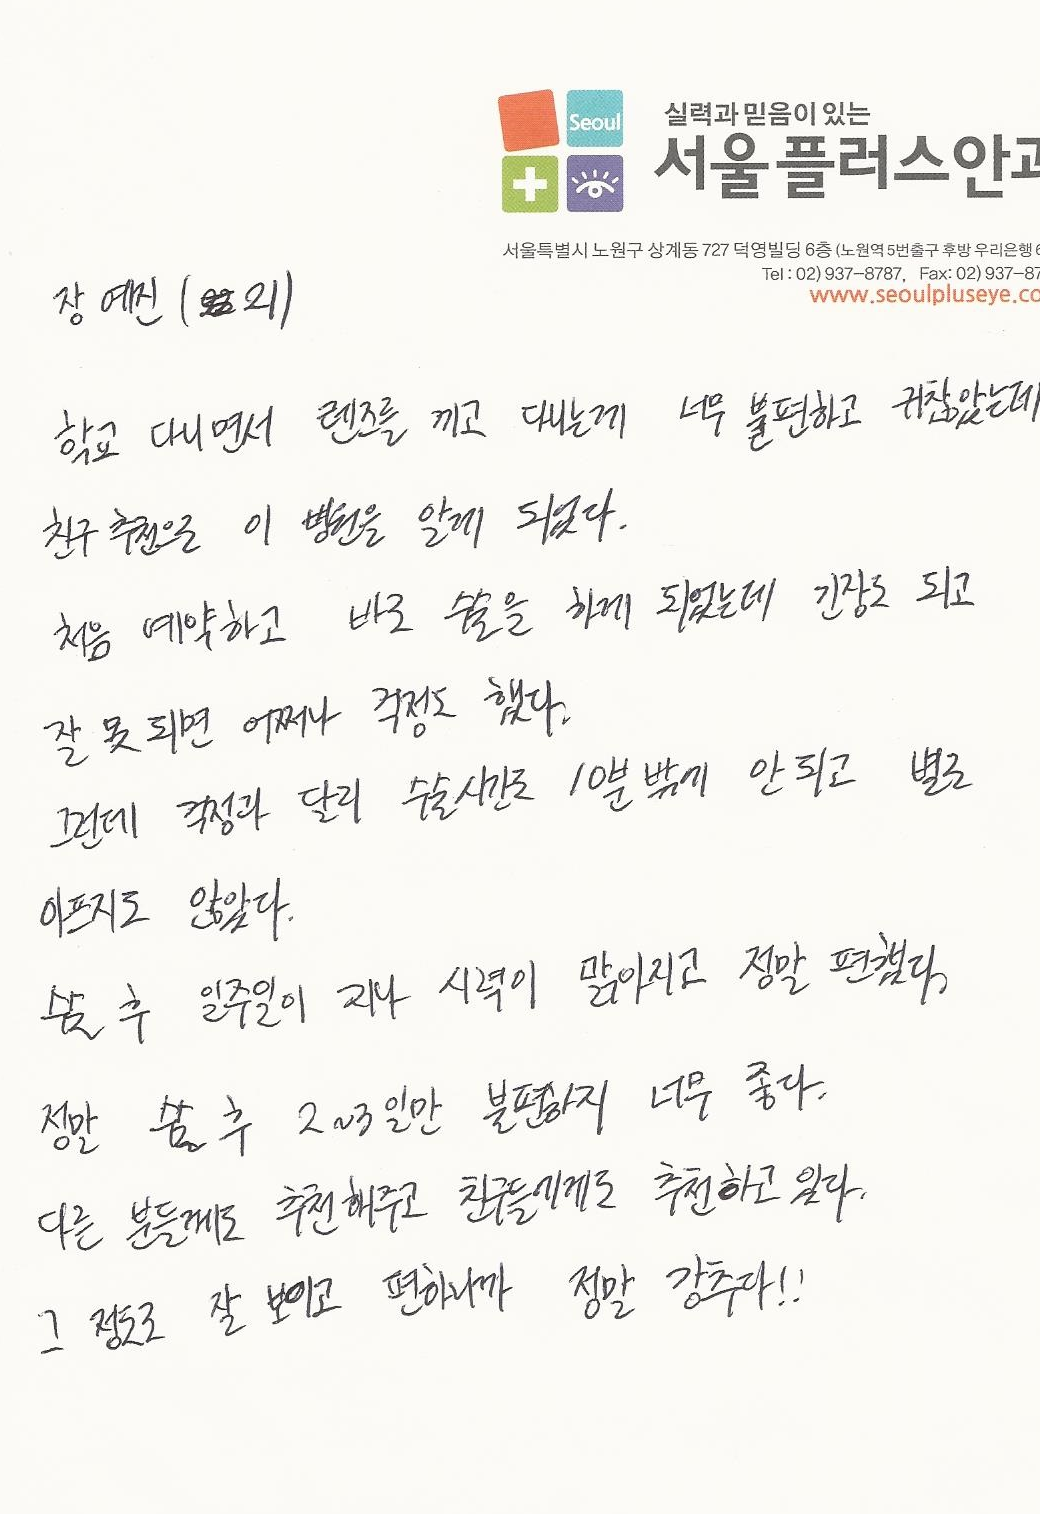 Seoul
실력과 믿음이 있는
서울플러스안과
서울특별시 노원구 상계동 727 덕영빌딩 6층 (노원역 5번출구 후방 우리은행 6
Tel : 02) 937-8787, Fax: 02) 937-87
www.seoulpluseye.co
장예진 ( 21)
학교 다니면서 렌즈를 끼고 다니는게 너무 불편하고 귀찮았는데
친구 추천으로 이 병원을 알게 되었다.
처음 예약하고 바로 수술을 하게 되었는데 긴장도 되고
잘 못 되면 어쩌나 걱정도 했다.
그런데 걱정과 달리 수술시간도 10분 밖에 안 되고 별로
아프지도 않았다.
수술 후 일주일이 지나 시력이 맑아지고 정말 편했다.
정말 수술 후 2~3일만 불편하지 너무 좋다.
다른 분들께도 추천해주고 친구들에게도 추천하고 있다.
그 정도로 잘 보이고 편하니까 정말 강추다!!